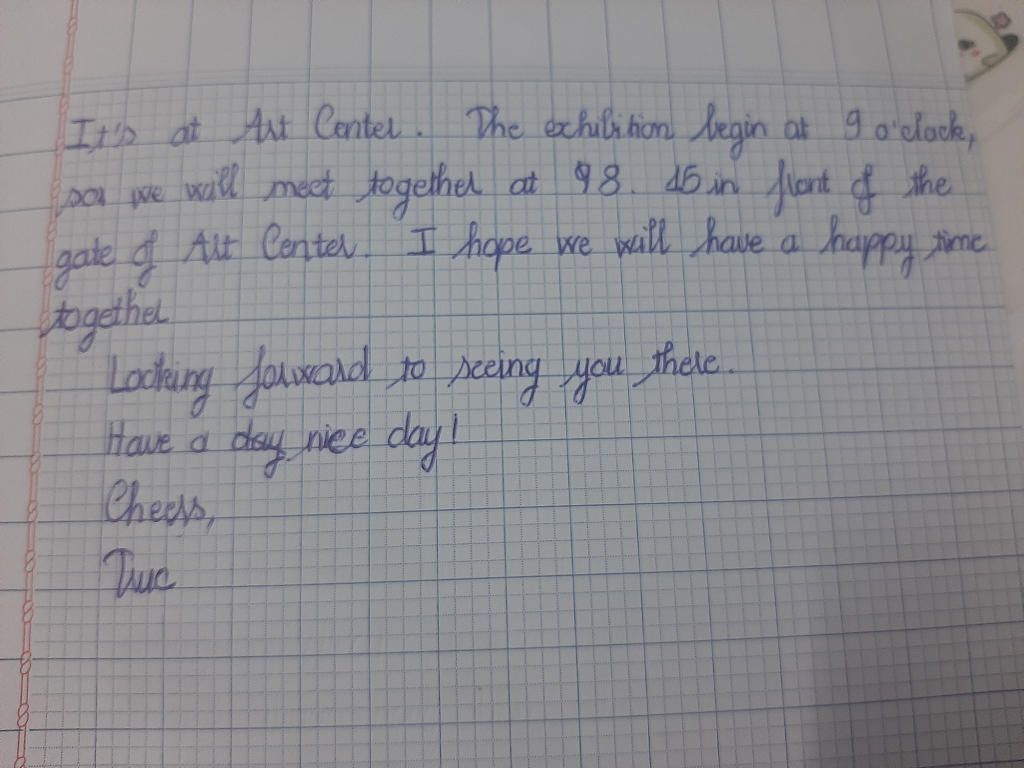 It's at Art Center. The exhibition begin at 9 o'clock,
so we will meet together at 98. 45 in front of the
gate of Art Center. I hope we will have a happy time
together
Looking forward to seeing you there.
Have a day nice day!
Cheers,
Truc